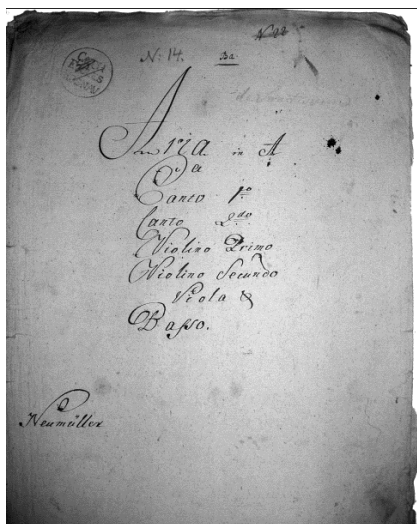 N: 14.
Aria in A
a
Canto 1mo
Canto 2do
Violino Primo
Violino Secundo
Viola &
Basso.
Neumüller